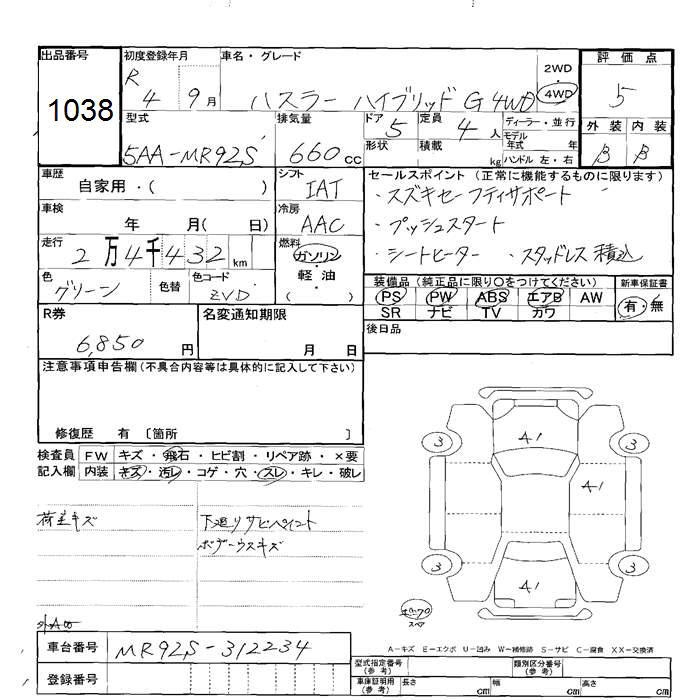 出品番号
1038
初度登録年月
R 4 9月
車名・グレード
ハスラー ハイブリッド G 4WD
2WD
4WD
評価点
5
外装 内装
B B
型式
5AA-MR92S
排気量
660cc
ドア 5
定員 4人
形状
積載 kg
ディーラー・並行
モデル年式 年
ハンドル 左・右
車歴
自家用・( )
シフト
IAT
セールスポイント (正常に機能するものに限ります)
・スズキセーフティサポート
・プッシュスタート
・シートヒーター ・スタッドレス積込
車検
年 月( 日)
冷房
AAC
走行
2万4千432km
燃料
ガソリン
軽・油
( )
色
グリーン
色替
色コード
ZVD
装備品 (純正品に限り○をつけてください)
PS PW ABS エアB AW
SR ナビ TV カワ
新車保証書
有・無
R券
6,850円
名変通知期限
月 日
後日品
注意事項申告欄(不具合内容等は具体的に記入して下さい)
修復歴 有 〔箇所 〕
検査員記入欄
FW キズ・飛石・ヒビ割・リペア跡・×要
内装 キズ・汚レ・コゲ・穴・スレ・キレ・破レ
荷室キズ
下廻りサビペイント
ボデーウスキズ
外A〇〇
3 A1 3
A1
3 A1 3
スペア
A-キズ E-エクボ U-凹み W-補修跡 S-サビ C-腐食 XX-交換済
車台番号
MR92S-312234
登録番号
型式指定番号(参考)
類別区分番号(参考)
車庫証明用(参考)
長さ cm 幅 cm 高さ cm